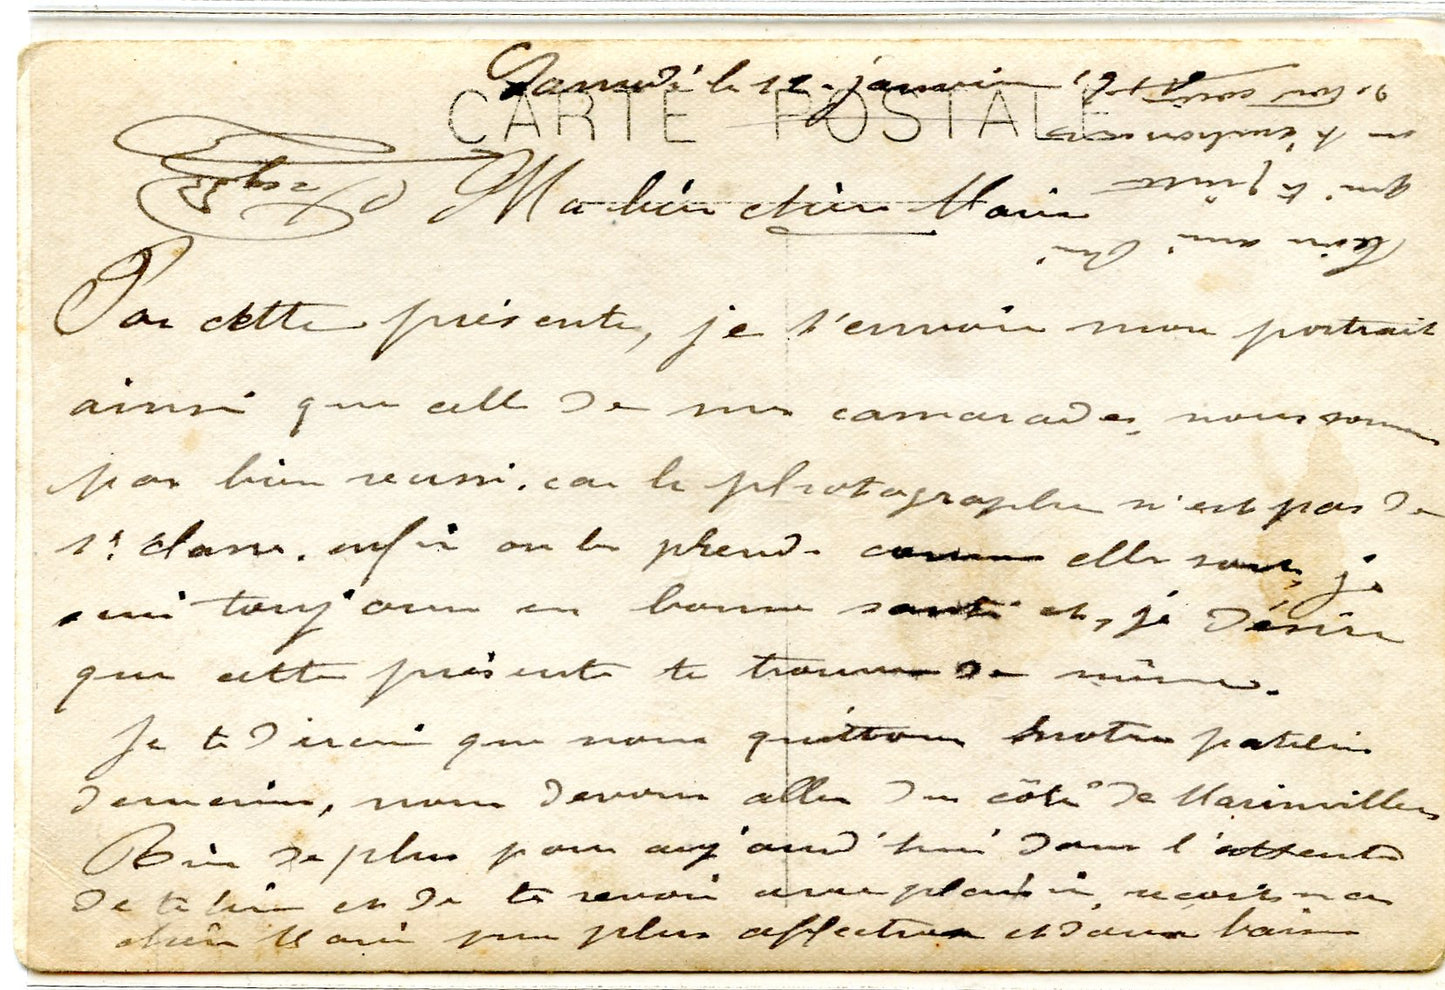 Samedi le 12 janvier 191
CARTE POSTALE
Ma bien chère Marie
Par cette présente, je t'envoie mon portrait
ainsi que celle de mes camarades, nous sommes
pas bien reussi. car le photographe n'est pas de
1e classe. enfin on les prend comme elle sont, je
suis toujours en bonne santé et, je désire
que cette présente te trouve de même.
Je te direai que nous quittons notre patelin
demain, nous devons aller du côté de
Rien de plus pour aujourd'hui dans l'attente
de te lire et de te revoir avec plaisir, recois ma
chère Marie mes plus affectueux et doux baisers
Ton ami
qui t'